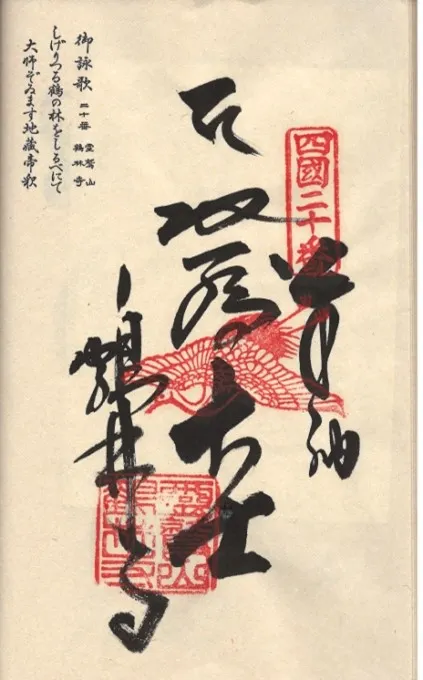 四國二十番
奉納
地蔵大士
鶴林寺
御詠歌 二十番 靈鷲山 鶴林寺
しげりつる鶴の林をしるべにて
大師ぞゐます地藏帝釈